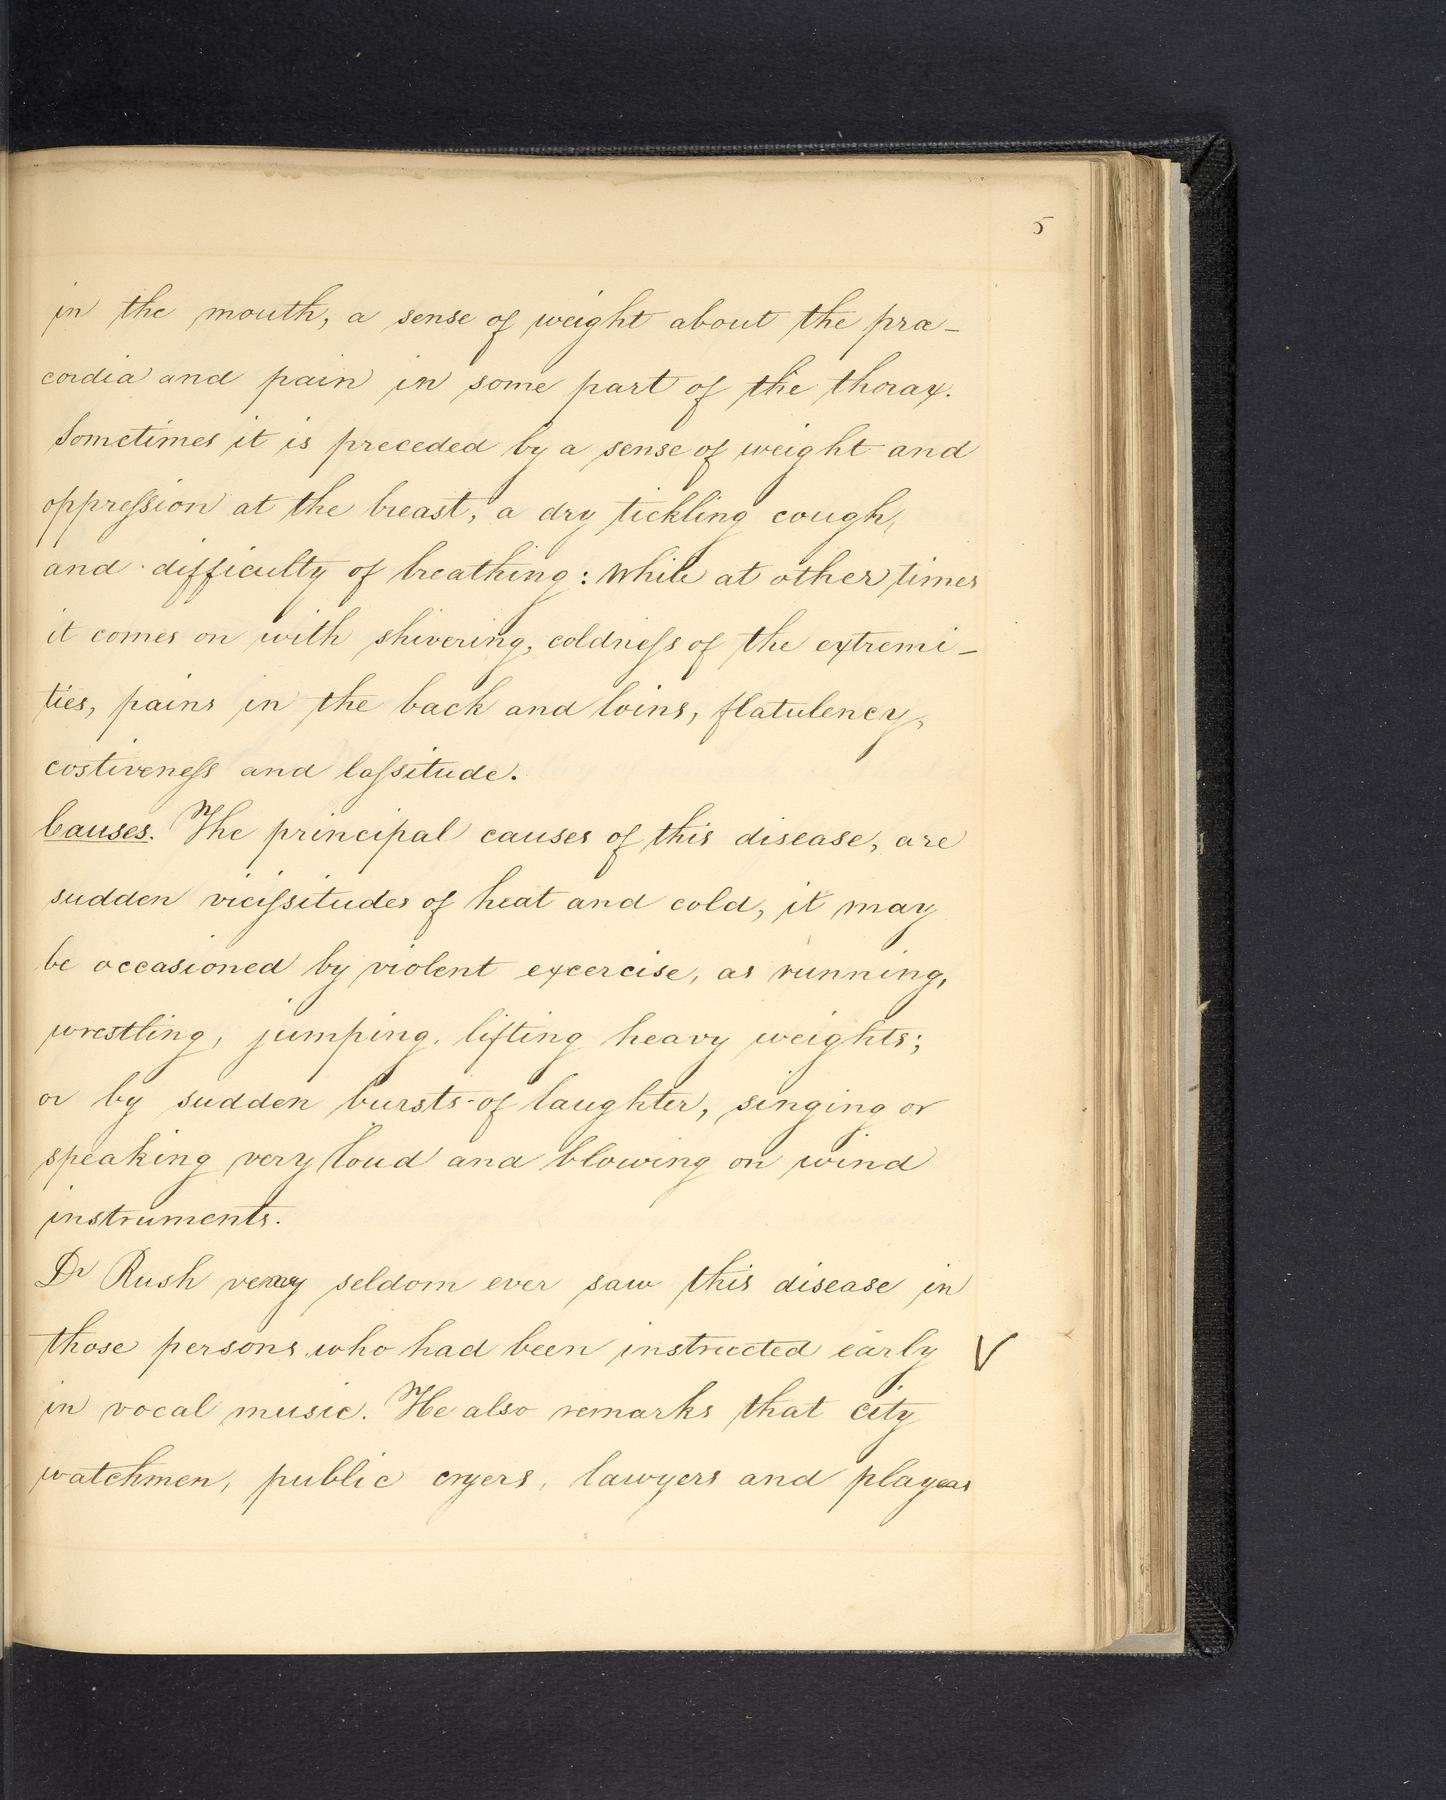 5
in the mouth, a sense of weight about the præ-
cordia and pain in some part of the thorax.
Sometimes it is preceded by a sense of weight and
oppreſsion at the breast, a dry tickling cough,
and difficulty of breathing: While at other times
it comes on with shivering, coldneſs of the extremi-
ties, pains in the back and loins, flatulency,
costiveneſs and laſsitude.
Causes. The principal causes of this disease, are
sudden viciſsitudes of heat and cold, it may
be occasioned by violent excercise, as running,
wrestling, jumping, lifting heavy weights;
or by sudden bursts of laughter, singing or
speaking very loud and blowing on wind
instruments.
Dr Rush very seldom ever saw this disease in
those persons who had been instructed early V
in vocal music. He also remarks that city
watchmen, public cryers, lawyers and players